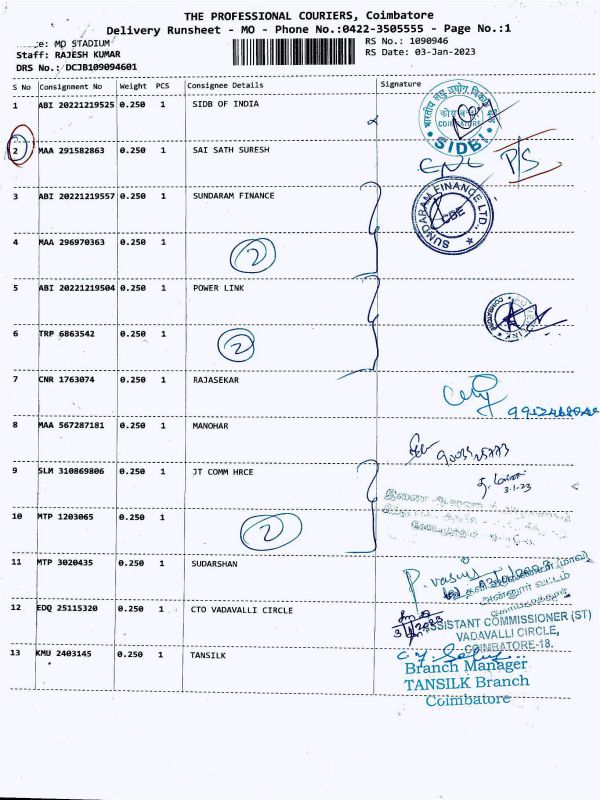 THE PROFESSIONAL COURIERS, Coimbatore
Delivery Runsheet - MO - Phone No.:0422-3505555 - Page No.:1
: MO STADIUM RS No.: 1090946
Staff: RAJESH KUMAR RS Date: 03-Jan-2023
DRS No.: DCJB109094601
S No Consignment No Weight PCS Consignee Details Signature
1 ABI 20221219525 0.250 1 SIDB OF INDIA
COIMBATORE
SIDBI
2 MAA 291582863 0.250 1 SAI SATH SURESH
P/S
3 ABI 20221219557 0.250 1 SUNDARAM FINANCE
SUNDARAM FINANCE LTD.,
CBE
4 MAA 296970363 0.250 1
2
5 ABI 20221219504 0.250 1 POWER LINK
6 TRP 6863542 0.250 1
2
7 CNR 1763074 0.250 1 RAJASEKAR
8 MAA 567287181 0.250 1 MANOHAR
9 SLM 310869806 0.250 1 JT COMM HRCE
3-1-23
10 MTP 1203065 0.250 1
2
11 MTP 3020435 0.250 1 SUDARSHAN
P. vasu
12 EDQ 25115320 0.250 1 CTO VADAVALLI CIRCLE
ASSISTANT COMMISSIONER (ST)
VADAVALLI CIRCLE,
COIMBATORE-18.
13 KMU 2403145 0.250 1 TANSILK
Branch Manager
TANSILK Branch
Coimbatore